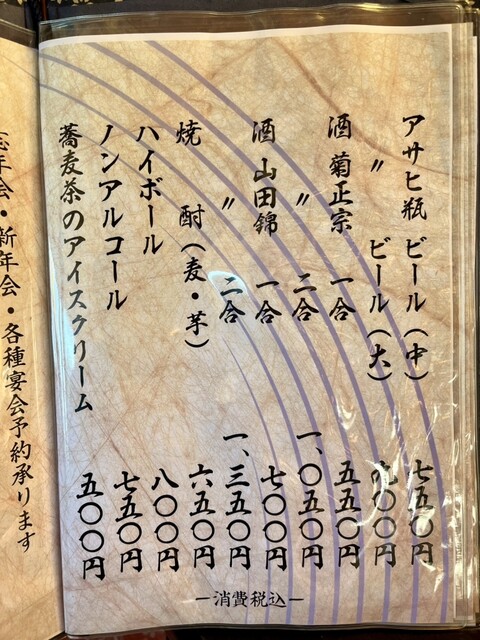 アサヒ瓶 ビール（中） 七五〇円
〃 ビール（大） 九〇〇円
酒 菊正宗 一合 五五〇円
〃 二合 一、〇五〇円
酒 山田錦 一合 七〇〇円
〃 二合 一、三五〇円
焼酎（麦・芋） 六五〇円
ハイボール 八〇〇円
ノンアルコール 七五〇円
蕎麦茶のアイスクリーム 五〇〇円
―消費税込―
忘年会・新年会・各種宴会予約承ります